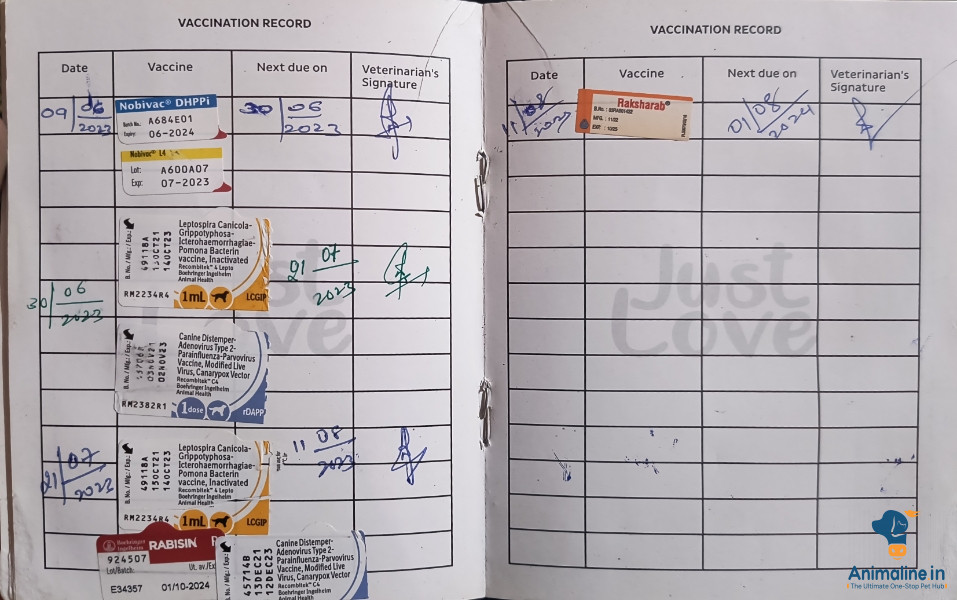 VACCINATION RECORD
Date
Vaccine
Next due on
Veterinarian's
Signature
09/06
2023
Nobivac® DHPPi
Batch No.: A684E01
Expiry: 06-2024
30/06
2023
Nobivac® L4
Lot: A600A07
Exp: 07-2023
30/06
2023
B. No. / Mfg. / Exp.:
4911BA
15OCT21
14OCT23
Leptospira Canicola-
Grippotyphosa-
Icterohaemorrhagiae-
Pomona Bacterin
vaccine, Inactivated
Recombitek® 4 Lepto
Boehringer Ingelheim
Animal Health
RM2234R4
1mL
LCGIP
21 07
2023
B. No. / Mfg. / Exp.:
03NOV21
02NOV23
Canine Distemper-
Adenovirus Type 2-
Parainfluenza-Parvovirus
Vaccine, Modified Live
Virus, Canarypox Vector
Recombitek® C4
Boehringer Ingelheim
Animal Health
RM2382R1
1dose
rDAPP
21/07
2023
B. No. / Mfg. / Exp.:
4911BA
15OCT21
14OCT23
Leptospira Canicola-
Grippotyphosa-
Icterohaemorrhagiae-
Pomona Bacterin
vaccine, Inactivated
Recombitek® 4 Lepto
Boehringer Ingelheim
Animal Health
RM2234R4
1mL
LCGIP
11 08
2023
Boehringer
Ingelheim
RABISIN
924507
Lot/Batch:
Ut. av./Ex
E34357
01/10-2024
45714B
13DEC21
12DEC23
Canine Distemper-
Adenovirus Type 2-
Parainfluenza-Parvovirus
Vaccine, Modified Live
Virus, Canarypox Vector
Recombitek® C4
Boehringer Ingelheim
Animal Health
VACCINATION RECORD
Date
Vaccine
Next due on
Veterinarian's
Signature
11/08
2023
Raksharab®
MFG. : 11/22
EXP. : 10/25
01/08
2024
Just
Love
Animaline in
The Ultimate One-Stop Pet Hub